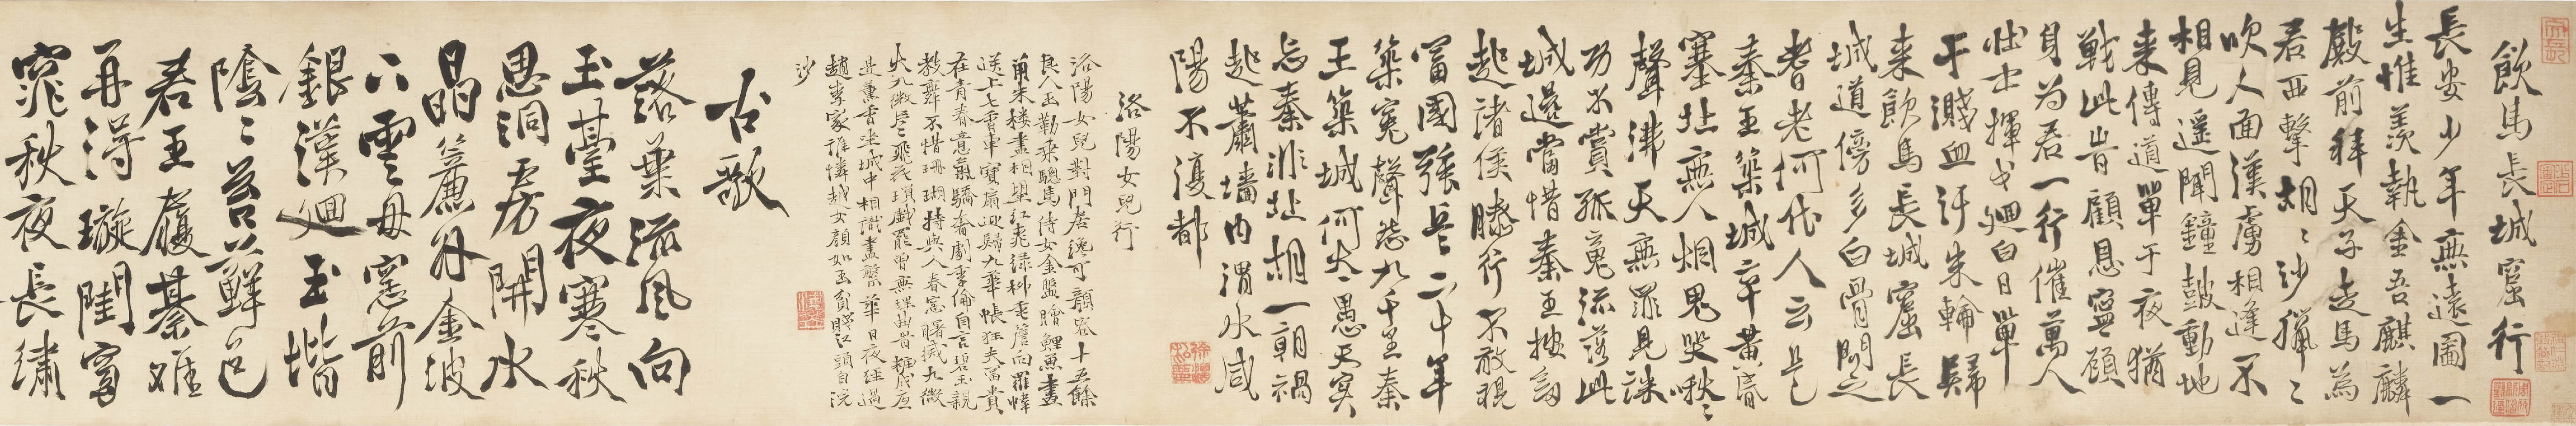 飲馬長城窟行
長安少年無遠圖一
生惟羨執金吾麒麟
殿前拜天子走馬為
君西擊胡〻沙獵〻
吹人面漢虜相逢不
相見遙聞鐘鼓動地
来傳道單于夜猶
戰此時顧恩寧顧
身為君一行催萬人
壯士揮戈廻白日單
于濺血汙朱輪歸
来飲馬長城窟長
城道傍多白骨問之
耆老何代人云是
秦王築城卒黃昏
塞北無人烟鬼哭啾〻
聲沸天無罪見誅
功不賞孤魂流落此
城邊當惜秦王按劍
起諸侯膝行不敢視
富國強兵二十年
築冤聲怨九千里秦
王築城何太愚天實
亡秦非北胡一朝禍
起蕭墻内渭水咸
陽不復都
洛陽女兒行
洛陽女兒對門居纔可顏容十五餘
良人玉勒乘驄馬侍女金盤膾鯉魚畫
閣朱樓盡相望紅桃綠柳垂簷向羅幃
送上七香車寶扇迎歸九華帳狂夫富貴
在青春意氣驕奢劇季倫自言碧玉親
教舞不惜珊瑚持與人春窓曙滅九微
火九微片〻飛花璅戲罷曾無理曲時粧成秪
是薰香坐城中相識盡繁華日夜經過
趙李家誰憐越女顏如玉貧賤江頭自浣
沙
古歌
落葉流風向
玉臺夜寒秋
思洞房開水
晶簾外金波
下雲母窓前
銀漢廻玉堦
陰〻苔蘚色
君王履綦難
再得璇閨窈
窕秋夜長繡